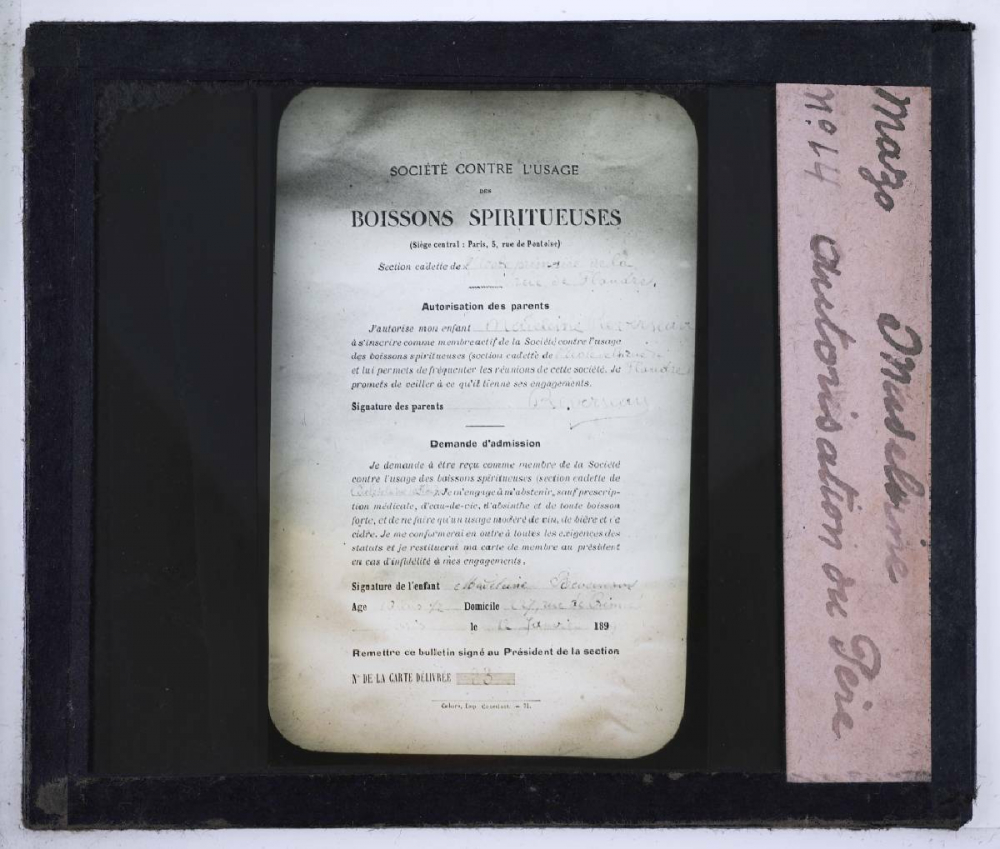 SOCIÉTÉ CONTRE L'USAGE
DES
BOISSONS SPIRITUEUSES
(Siége central : Paris, 5, rue de Pontoise)
Section cadette de l'école primaire de la
rue de Flandre.
Autorisation des parents
J'autorise mon enfant
à s'inscrire comme membre actif de la Société contre l'usage
des boissons spiritueuses (section cadette de
et lui permets de fréquenter les réunions de cette société. Je Flandre
promets de veiller à ce qu'il tienne ses engagements.
Signature des parents
Demande d'admission
Je demande à être reçu comme membre de la Société
contre l'usage des boissons spiritueuses (section cadette de
Je m'engage à m'abstenir, sauf prescrip-
tion médicale, d'eau-de-vie, d'absinthe et de toute boisson
forte, et de ne faire qu'un usage modéré de vin, de bière et de
cidre. Je me conformerai en outre à toutes les exigences des
statuts et je restituerai ma carte de membre au président
en cas d'infidélité à mes engagements.
Signature de l'enfant Madeleine
Age Domicile rue de
le 12 Janvier 189
Remettre ce bulletin signé au Président de la section
N° DE LA CARTE DÉLIVRÉE 23
Cahors, Imp.
Mazo
n° 14